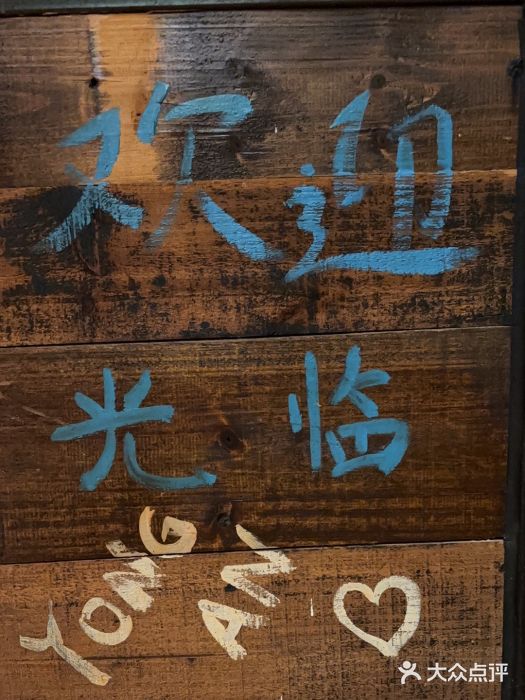 欢迎
光临
YONG
AN
大众点评